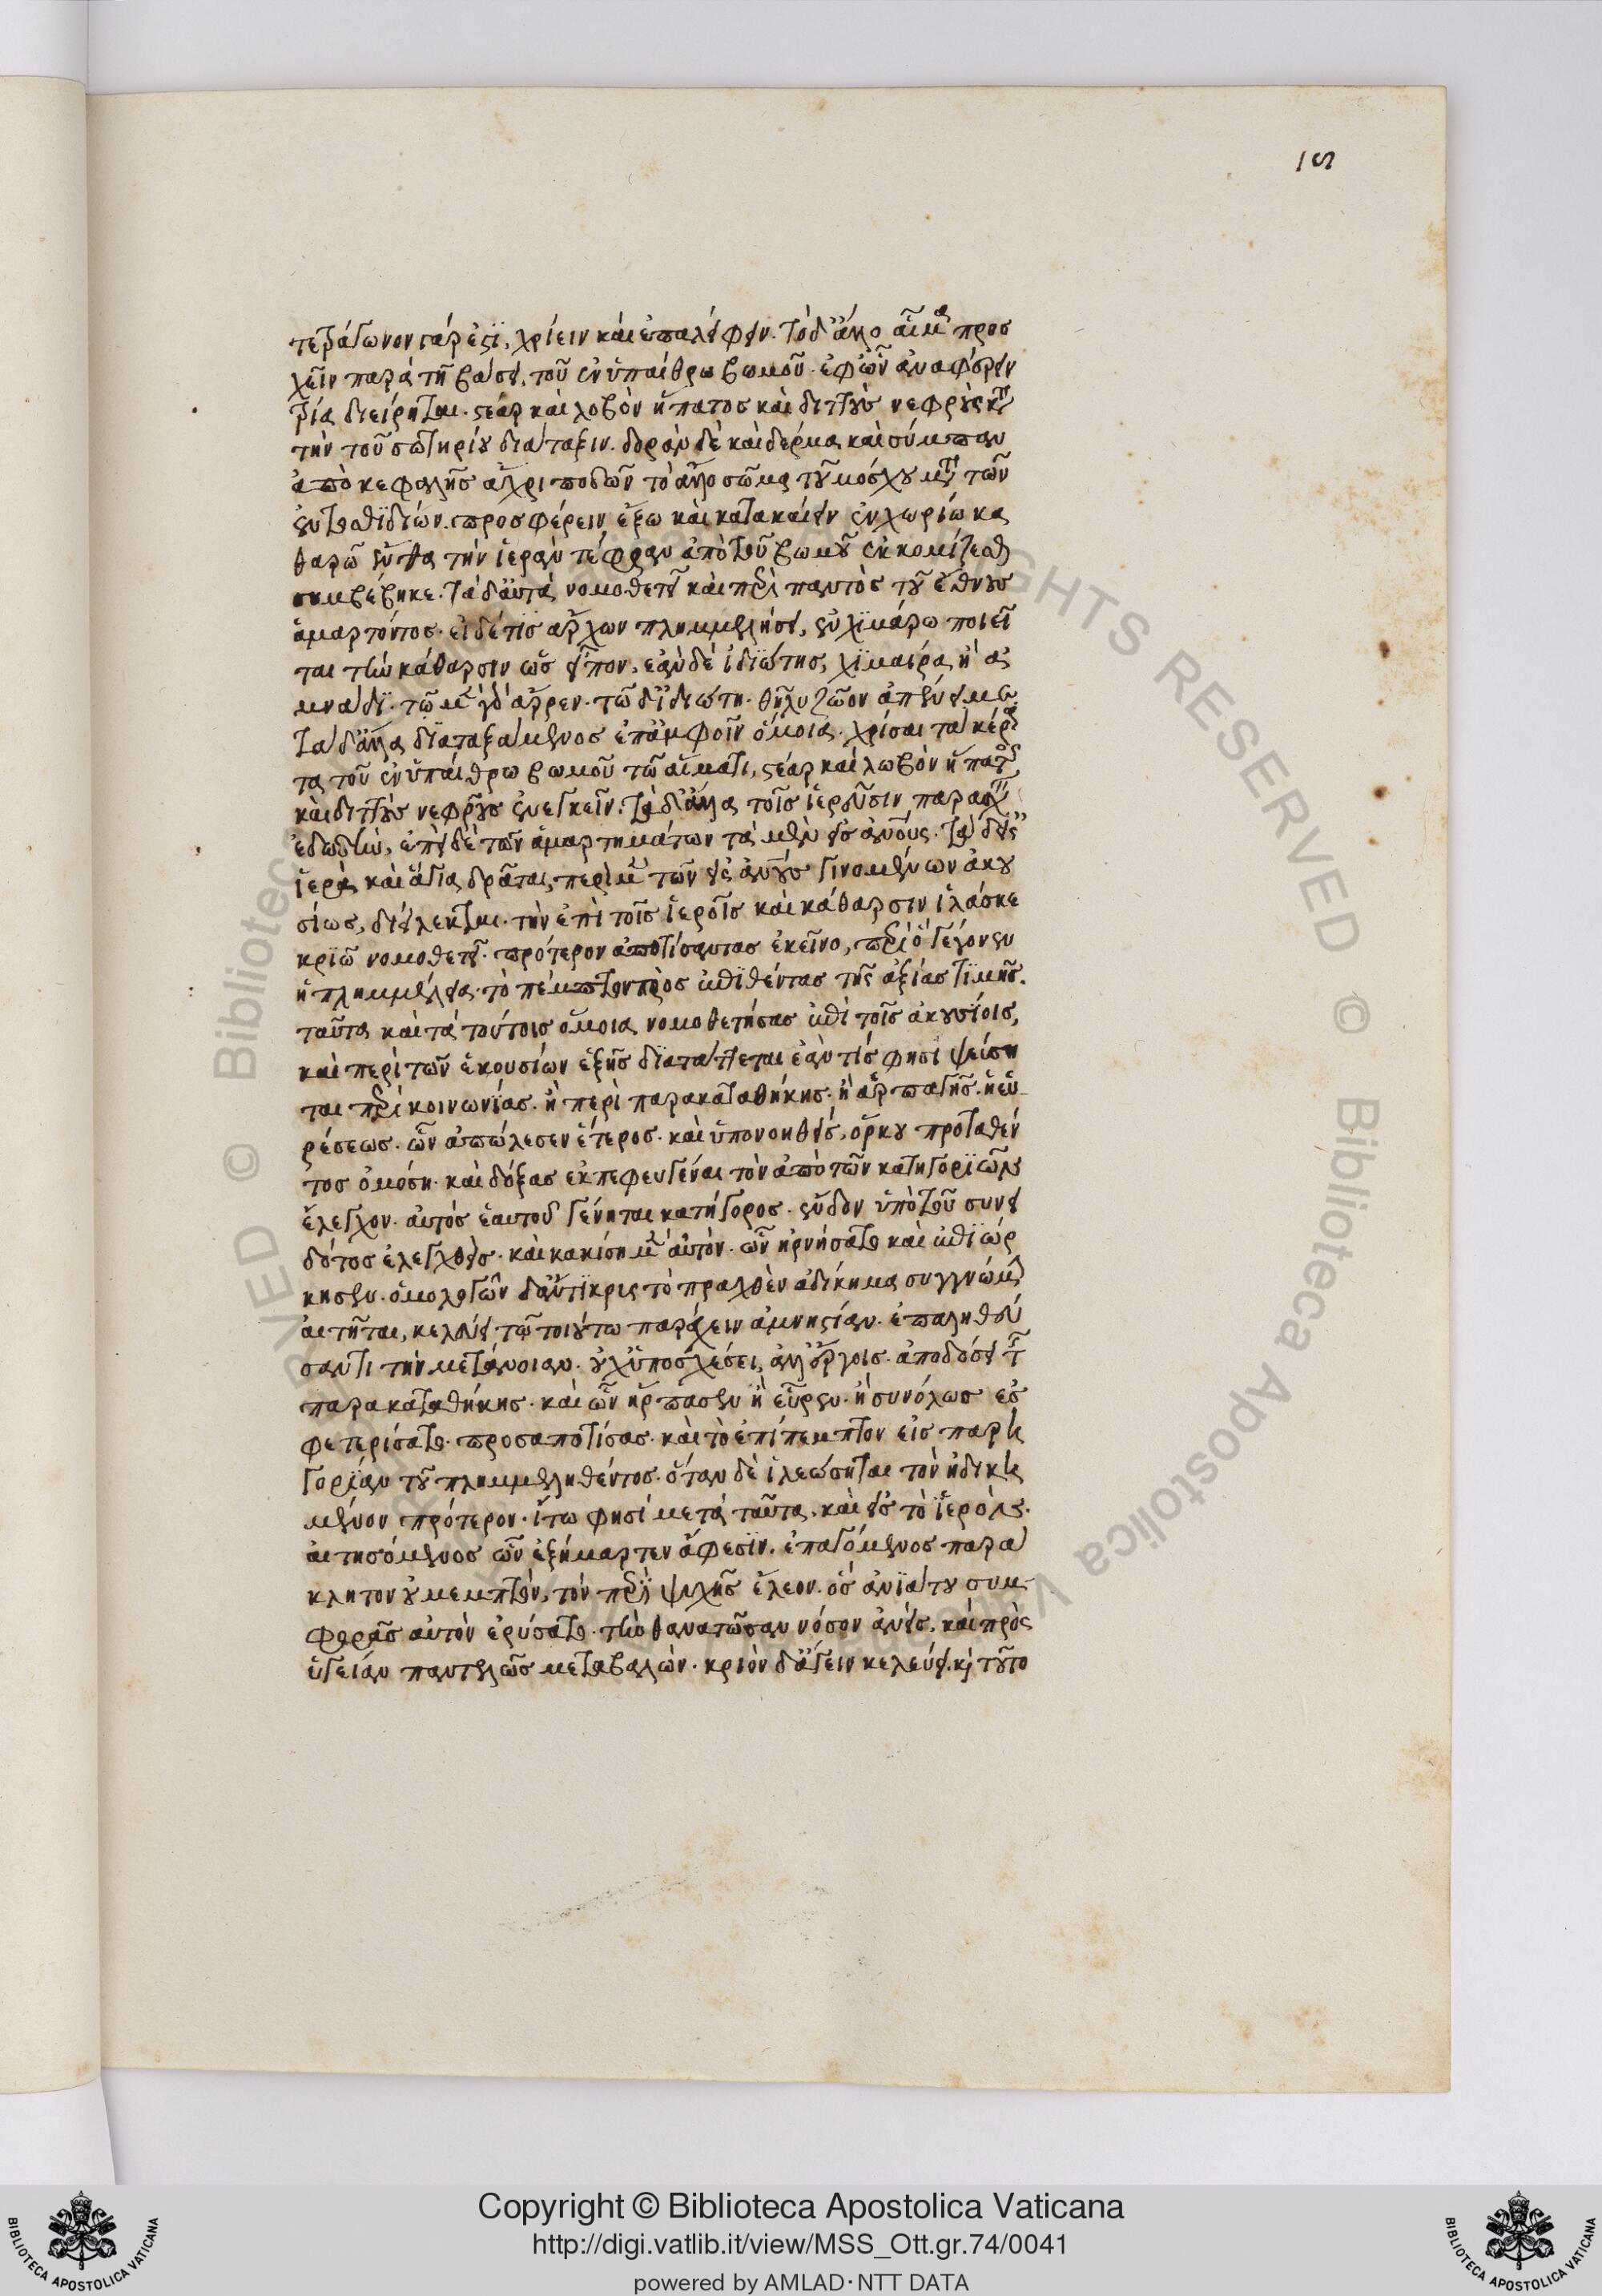 ιϛ
τετράγωνον γάρ ἐστι, χρίειν καὶ ἐπαλείφειν. τὸ δ' ἄλλο αἷμα προσ
χεῖν παρὰ τῇ βάσει, τοῦ ἐν ὑπαίθρω βωμοῦ. ἐφ' ὧν ἀναφέρειν
τρία διείρηται. στέαρ καὶ λοβὸν ἥπατος καὶ διττοὺς νεφροὺς κατὰ
τὴν τοῦ σωτηρίου διάταξιν. δορὰν δὲ καὶ δέρμα καὶ σύμπαν
ἀπὸ κεφαλῆς ἄχρι ποδῶν τὸ ἄλλο σῶμα τοῦ μόσχου μετὰ τῶν
ἐντοσθιδίων. προσφέρειν ἔξω καὶ κατακαίειν ἐν χωρίω κα
θαρῶ ἔνθα τὴν ἱερὰν τέφραν ἀπὸ τοῦ βωμοῦ ἐκκομίζεσθαι
συμβέβηκε. τὰ δ' αὐτὰ νομοθετεῖ καὶ περὶ παντὸς τοῦ ἔθνους
ἁμαρτόντος. εἰ δέ τις ἄρχων πλημμελήσει, ἐν χιμάρω ποιεῖ
ται τὴν κάθαρσιν ὡς εἶπον, ἐὰν δὲ ἰδιώτης, χιμαίρα ἢ ἀ
μνάδι. τῶ μὲν γὰρ ἄρρεν. τῶ δ' ἰδιώτη. θῆλυ ζῶον ἀπένειμε
τὰ δ' ἄλλα διαταξάμενος ἐπ' ἀμφοῖν ὅμοια. χρίσαι τὰ κέρα
τα τοῦ ἐν ὑπαίθρω βωμοῦ τῶ αἵματι, στέαρ καὶ λωβὸν ἥπατος
καὶ διττοὺς νεφροὺς ἀνενεγκεῖν. τὰ δ' ἄλλα τοῖς ἱεροῦσιν παρασχεῖν
ἐδωδὴν, ἐπεὶ δὲ τῶν ἁμαρτημάτων τὰ μὲν εἰς ἀνους. τὰ δ' εἰς
ἱερὰ καὶ ἅγια δρᾶται, περὶ μὲν τῶν εἰς ἀνους γινομένων ἀκου
σίως, διείλεκται. τὴν ἐπὶ τοῖς ἱεροῖς καὶ κάθαρσιν ἱλάσκε
κριῶ νομοθετεῖ. πρότερον ἀποτίσαντας ἐκεῖνο, περὶ ὃ γέγονεν
ἡ πλημμέλεια. τὸ πέμπτον προσεπιθέντας τῆς ἀξίας τιμῆς.
ταῦτα καὶ τὰ τούτοις ὅμοια νομοθετήσας ἐπὶ τοῖς ἀκουσίοις,
καὶ περὶ τῶν ἑκουσίων ἑξῆς διατάττεται ἐάν τίς φησι ψεύση
ται περὶ κοινωνίας. ἢ περὶ παρακαταθήκης. ἢ ἁρπαγῆς. ἢ εὑ
ρέσεως. ὧν ἀπώλεσεν ἕτερος. καὶ ὑπονοηθεὶς, ὅρκου προταθέν
τος ὀμόση. καὶ δόξας ἐκπεφευγέναι τὸν ἀπὸ τῶν κατηγορϊῶν
ἔλεγχον. αὐτὸς ἑαυτοῦ γένηται κατήγορος. ἔνδον ὑπὸ τοῦ συνει
δότος ἐλεγχθεὶς. καὶ κακίση μὲν αὐτὸν. ὧν ἠρνήσατο καὶ ἐπιώρ
κησεν. ὁμολογῶν δ' ἄντικρις τὸ πραχθὲν ἀδίκημα συγγνώμην
αἰτῆται, κελεύει τῶ τοιούτω παρέχειν ἀμνηστίαν. ἐπαληθεύ
σαντι τὴν μετάνοιαν. οὐχ ὑποσχέσει, ἀλλ' ἔργοις. ἀποδόσει τῆς
παρακαταθήκης. καὶ ὧν ἥρπασεν ἢ εὗρεν. ἢ συνόλως ἐσ
φετερίσατο. προσαποτίσας. καὶ τὸ ἐπίπεμπτον εἰς παρη
γορίαν τοῦ πλημμεληθέντος. ὅταν δὲ ἱλεώσηται τὸν ἠδικη
μένον πρότερον. ἴτω φησὶ μετὰ ταῦτα. καὶ εἰς τὸ ἱερὸν.
αἰτησόμενος ὧν ἐξήμαρτεν ἄφεσιν. ἐπαγόμενος παρά
κλητον οὐ μεμπτὸν, τὸν περὶ ψυχῆς ἔλεον. ὃς ἀνιάτου συμ
φορᾶς αὐτὸν ἐρύσατο. τὴν θανατῶσαν νόσον ἀνεὶς. καὶ πρὸς
ὑγείαν παντελῶς μεταβαλὼν. κριὸν δ' ἄγειν κελεύει. καὶ τοῦτο
Copyright © Biblioteca Apostolica Vaticana
http://digi.vatlib.it/view/MSS_Ott.gr.74/0041
powered by AMLAD·NTT DATA